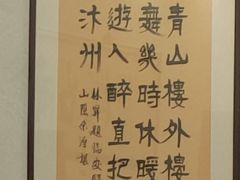 青山樓外樓
舞幾時休暖
遊人醉直把
汴州
林昇題臨安
山陰